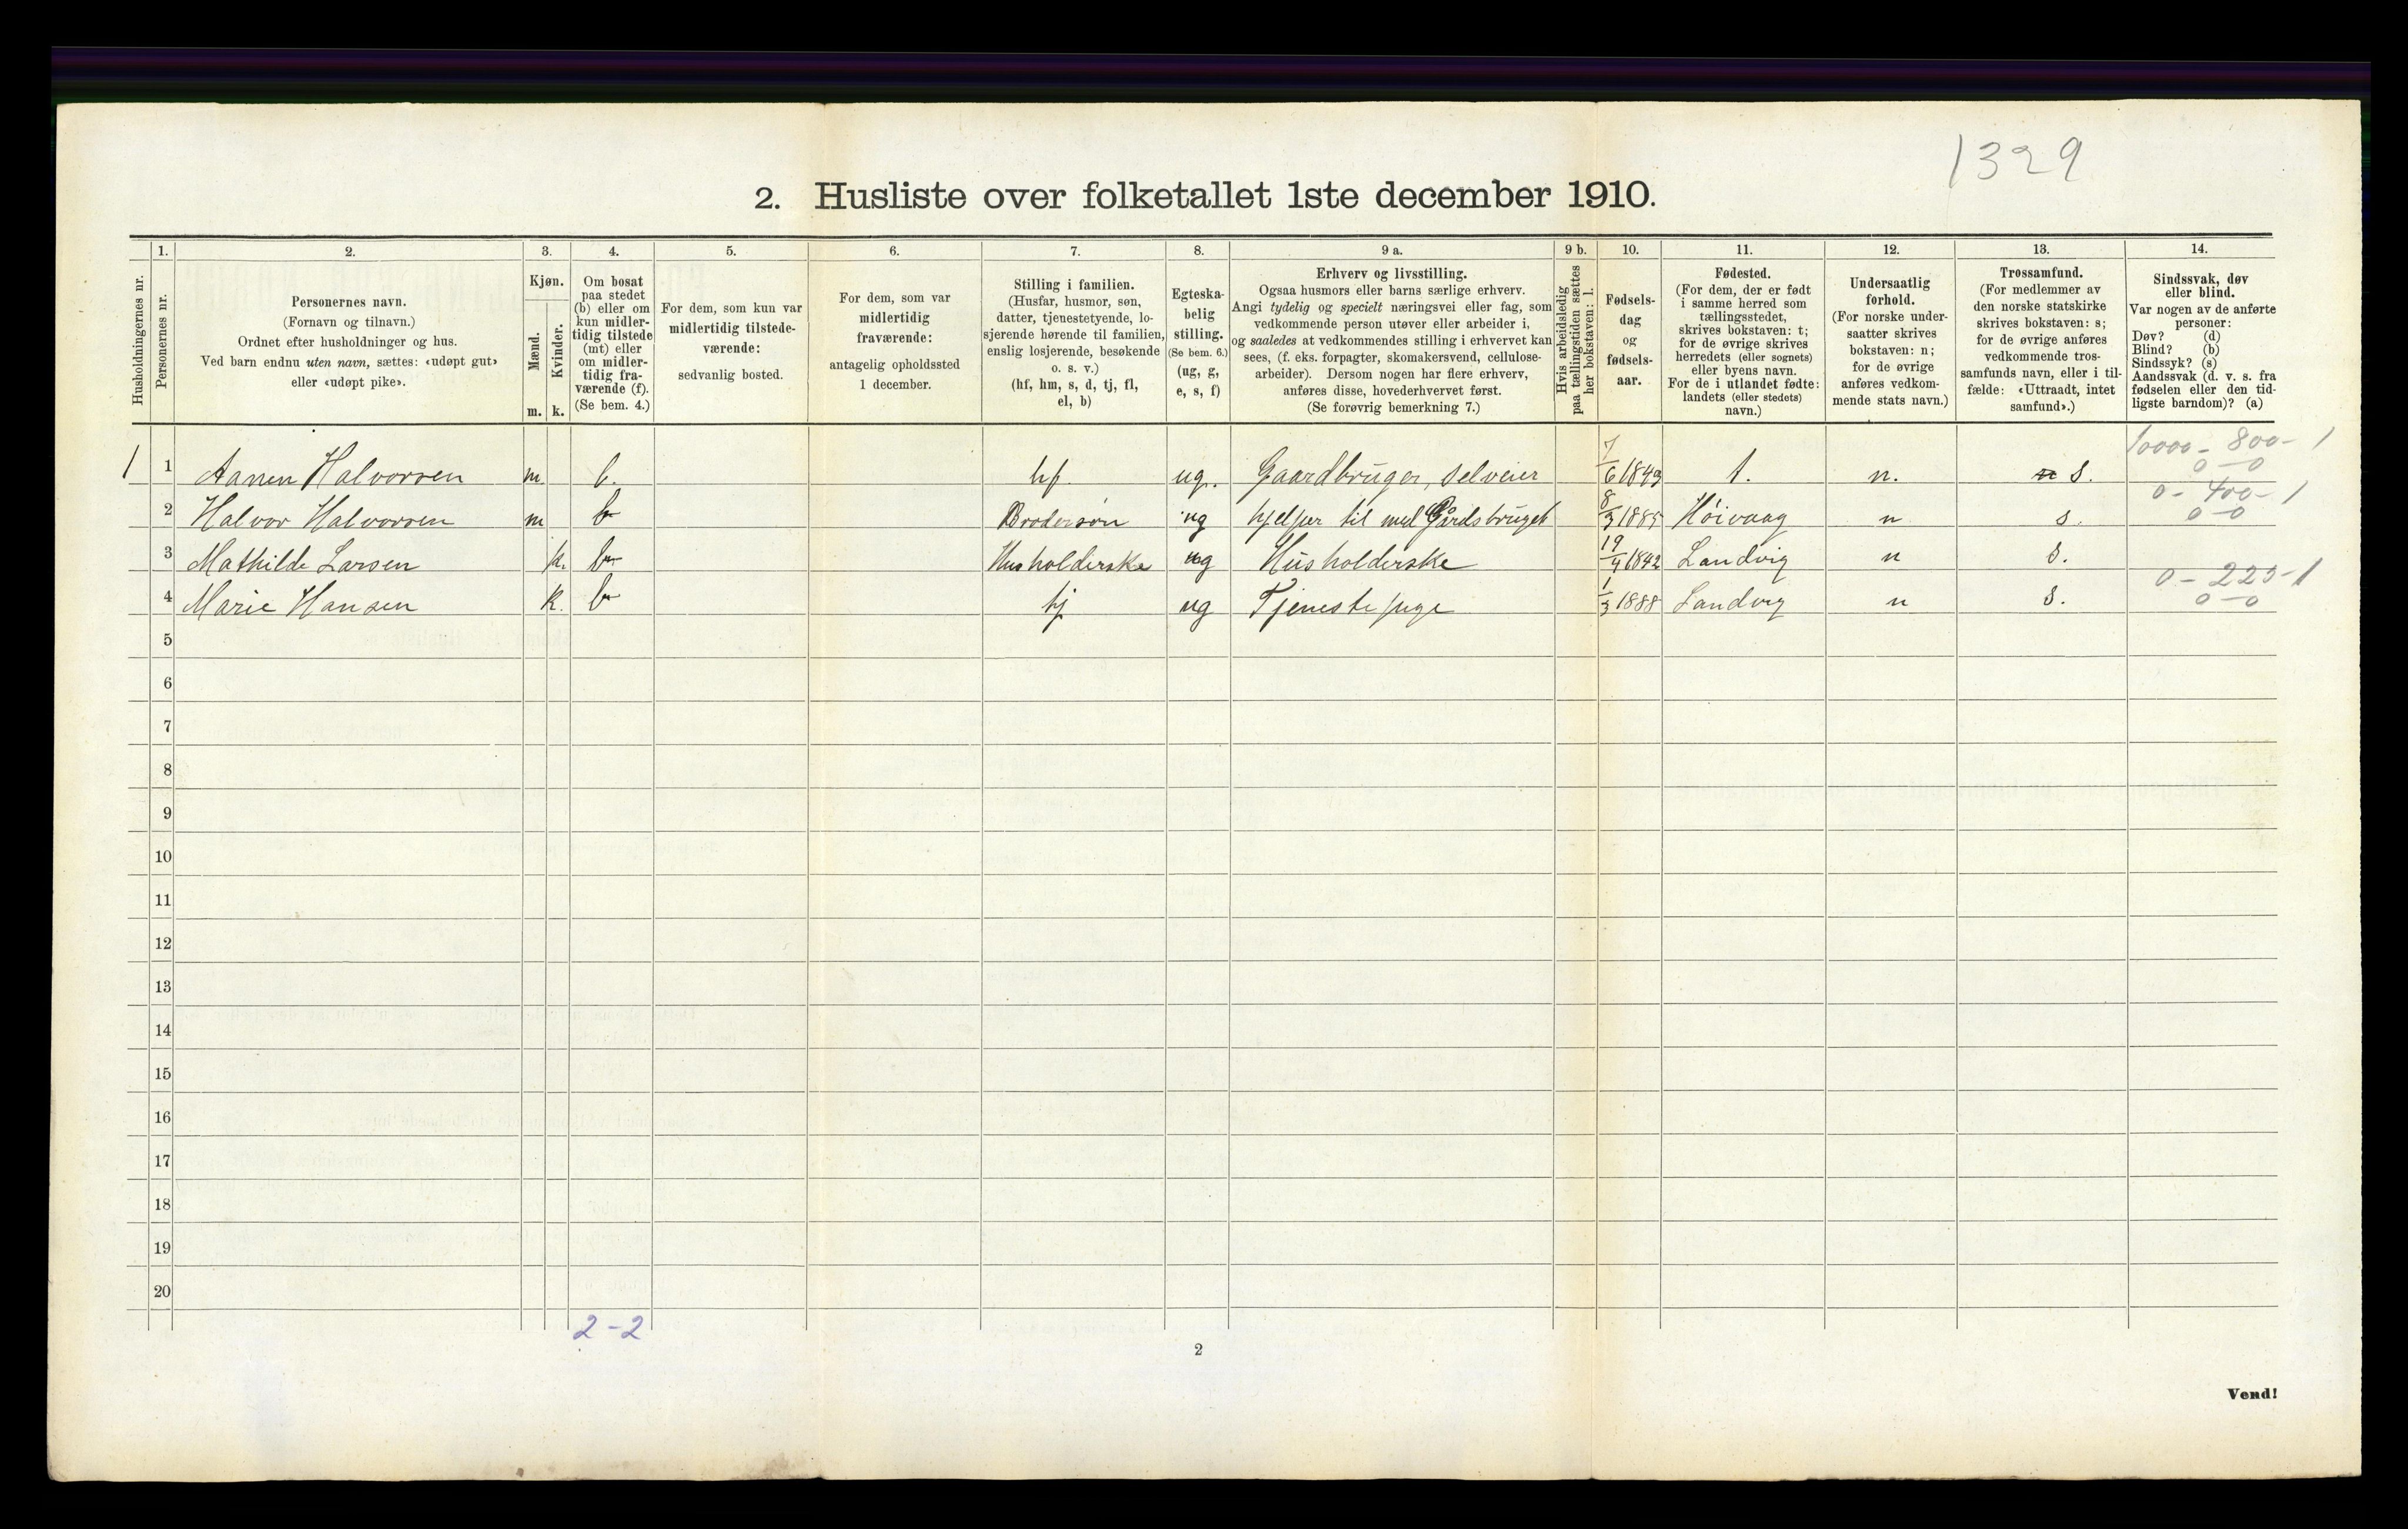 1329
2. Husliste over folketallet 1ste december 1910.
Husholdningernes nr.
1.
Personernes nr.
2.
Personernes navn.
(Fornavn og tilnavn.)
Ordnet efter husholdninger og hus.
Ved barn endnu uten navn, sættes: «udøpt gut»
eller «udøpt pike».
3.
Kjøn.
Mænd.
Kvinder.
m. k.
4.
Om bosat
paa stedet
(b) eller om
kun midler-
tidig tilstede
(mt) eller
om midler-
tidig fra-
værende (f).
(Se bem. 4.)
5.
For dem, som kun var
midlertidig tilstede-
værende:
sedvanlig bosted.
6.
For dem, som var
midlertidig
fraværende:
antagelig opholdssted
1 december.
7.
Stilling i familien.
(Husfar, husmor, søn,
datter, tjenestetyende, lo-
sjerende hørende til familien,
enslig losjerende, besøkende
o. s. v.)
(hf, hm, s, d, tj, fl,
el, b)
8.
Egteska-
belig
stilling.
(Se bem. 6.)
(ug, g,
e, s, f)
9 a.
Erhverv og livsstilling.
Ogsaa husmors eller barns særlige erhverv.
Angi tydelig og specielt næringsvei eller fag, som
vedkommende person utøver eller arbeider i,
og saaledes at vedkommendes stilling i erhvervet kan
sees, (f. eks. forpagter, skomakersvend, cellulose-
arbeider). Dersom nogen har flere erhverv,
anføres disse, hovederhvervet først.
(Se forøvrig bemerkning 7.)
9 b.
Hvis arbeidsledig
paa tællingstiden sættes
her bokstaven: l.
10.
Fødsels-
dag
og
fødsels-
aar.
11.
Fødested.
(For dem, der er født
i samme herred som
tællingsstedet,
skrives bokstaven: t;
for de øvrige skrives
herredets (eller sognets)
eller byens navn.
For de i utlandet fødte:
landets (eller stedets)
navn.)
12.
Undersaatlig
forhold.
(For norske under-
saatter skrives
bokstaven: n;
for de øvrige
anføres vedkom-
mende stats navn.)
13.
Trossamfund.
(For medlemmer av
den norske statskirke
skrives bokstaven: s;
for de øvrige anføres
vedkommende tros-
samfunds navn, eller i til-
fælde: «Uttraadt, intet
samfund».)
14.
Sindssvak, døv
eller blind.
Var nogen av de anførte
personer:
Døv? (d)
Blind? (b)
Sindssyk? (s)
Aandssvak (d. v. s. fra
fødselen eller den tid-
ligste barndom)? (a)
10000 - 800 - 1
0 - 0
1 1 Aanen Halvorsen m b. hf ug. Gaardbruger, selveier 7/6 1843 t. n. n s.
0 - 400 - 1
0 - 0
2 Halvor Halvorsen m b Brodersøn ug hjelper til med Gårdsbruget 8/3 1885 Höivaag n s.
3 Mathilde Larsen k. b Husholderske ug Husholderske 19/4 1842 Landvig n s.
0 - 225 - 1
0 - 0
4 Marie Hansen k. b tj ug Tjenestepige 1/3 1888 Landvig n s.
5
6
7
8
9
10
11
12
13
14
15
16
17
18
19
20
2 - 2
2
Vend!